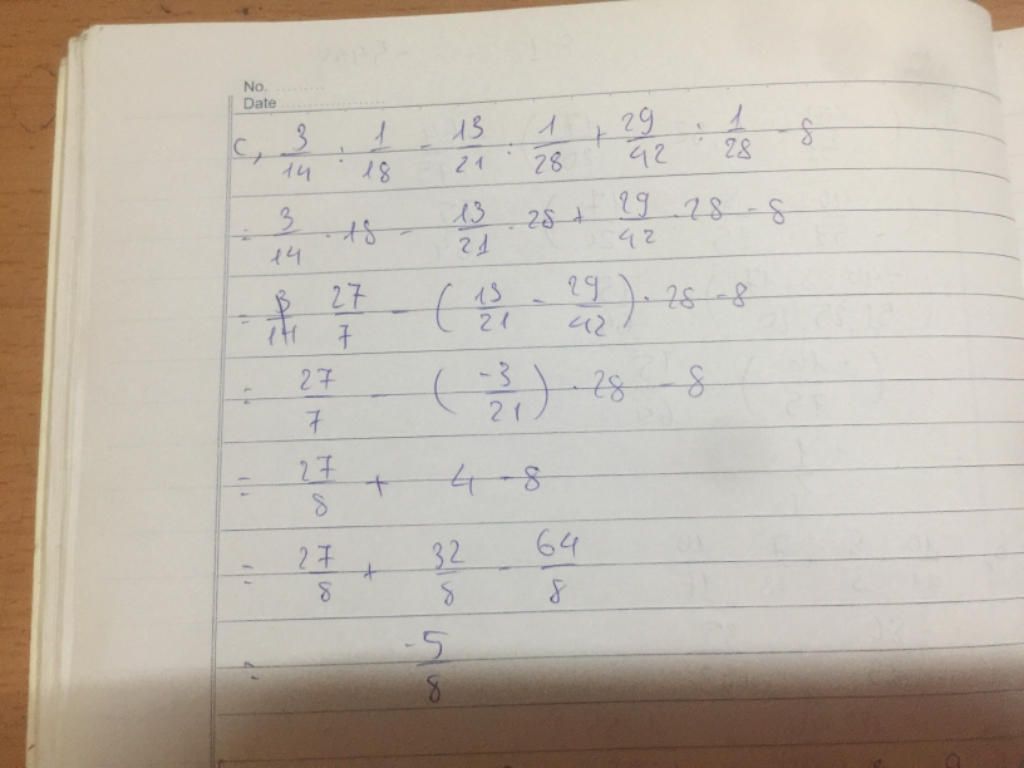 No. ..........
Date ....................
c, 3/14 : 1/18 - 13/21 : 1/28 + 29/42 : 1/28 - 8
= 3/14 . 18 - 13/21 . 28 + 29/42 . 28 - 8
= 27/7 - ( 13/21 - 29/42 ) . 28 - 8
= 27/7 - ( -3/21 ) . 28 - 8
= 27/8 + 4 - 8
= 27/8 + 32/8 - 64/8
= -5/8